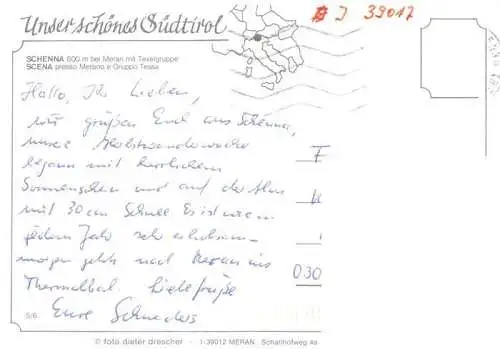 Unser schönes Südtirol
I 39017
SCHENNA 600 m bei Meran mit Texelgruppe
SCENA presso Merano e Gruppo Tessa
Hallo, Ihr Lieben,
wir grüßen Euch aus Schenna,
unsere Herbstwanderwoche
begann mit herrlichem
Sonnenschein und auf der Alm
mit 30 cm Schnee Es ist wie in
jedem Jahr sehr erholsam-
morgen geht's nach Meran ins
Thermalbad. Liebe Grüße
Eure Schneiders
F
030
5/6
© foto dieter drescher · I-39012 MERAN Schanhofweg 4a